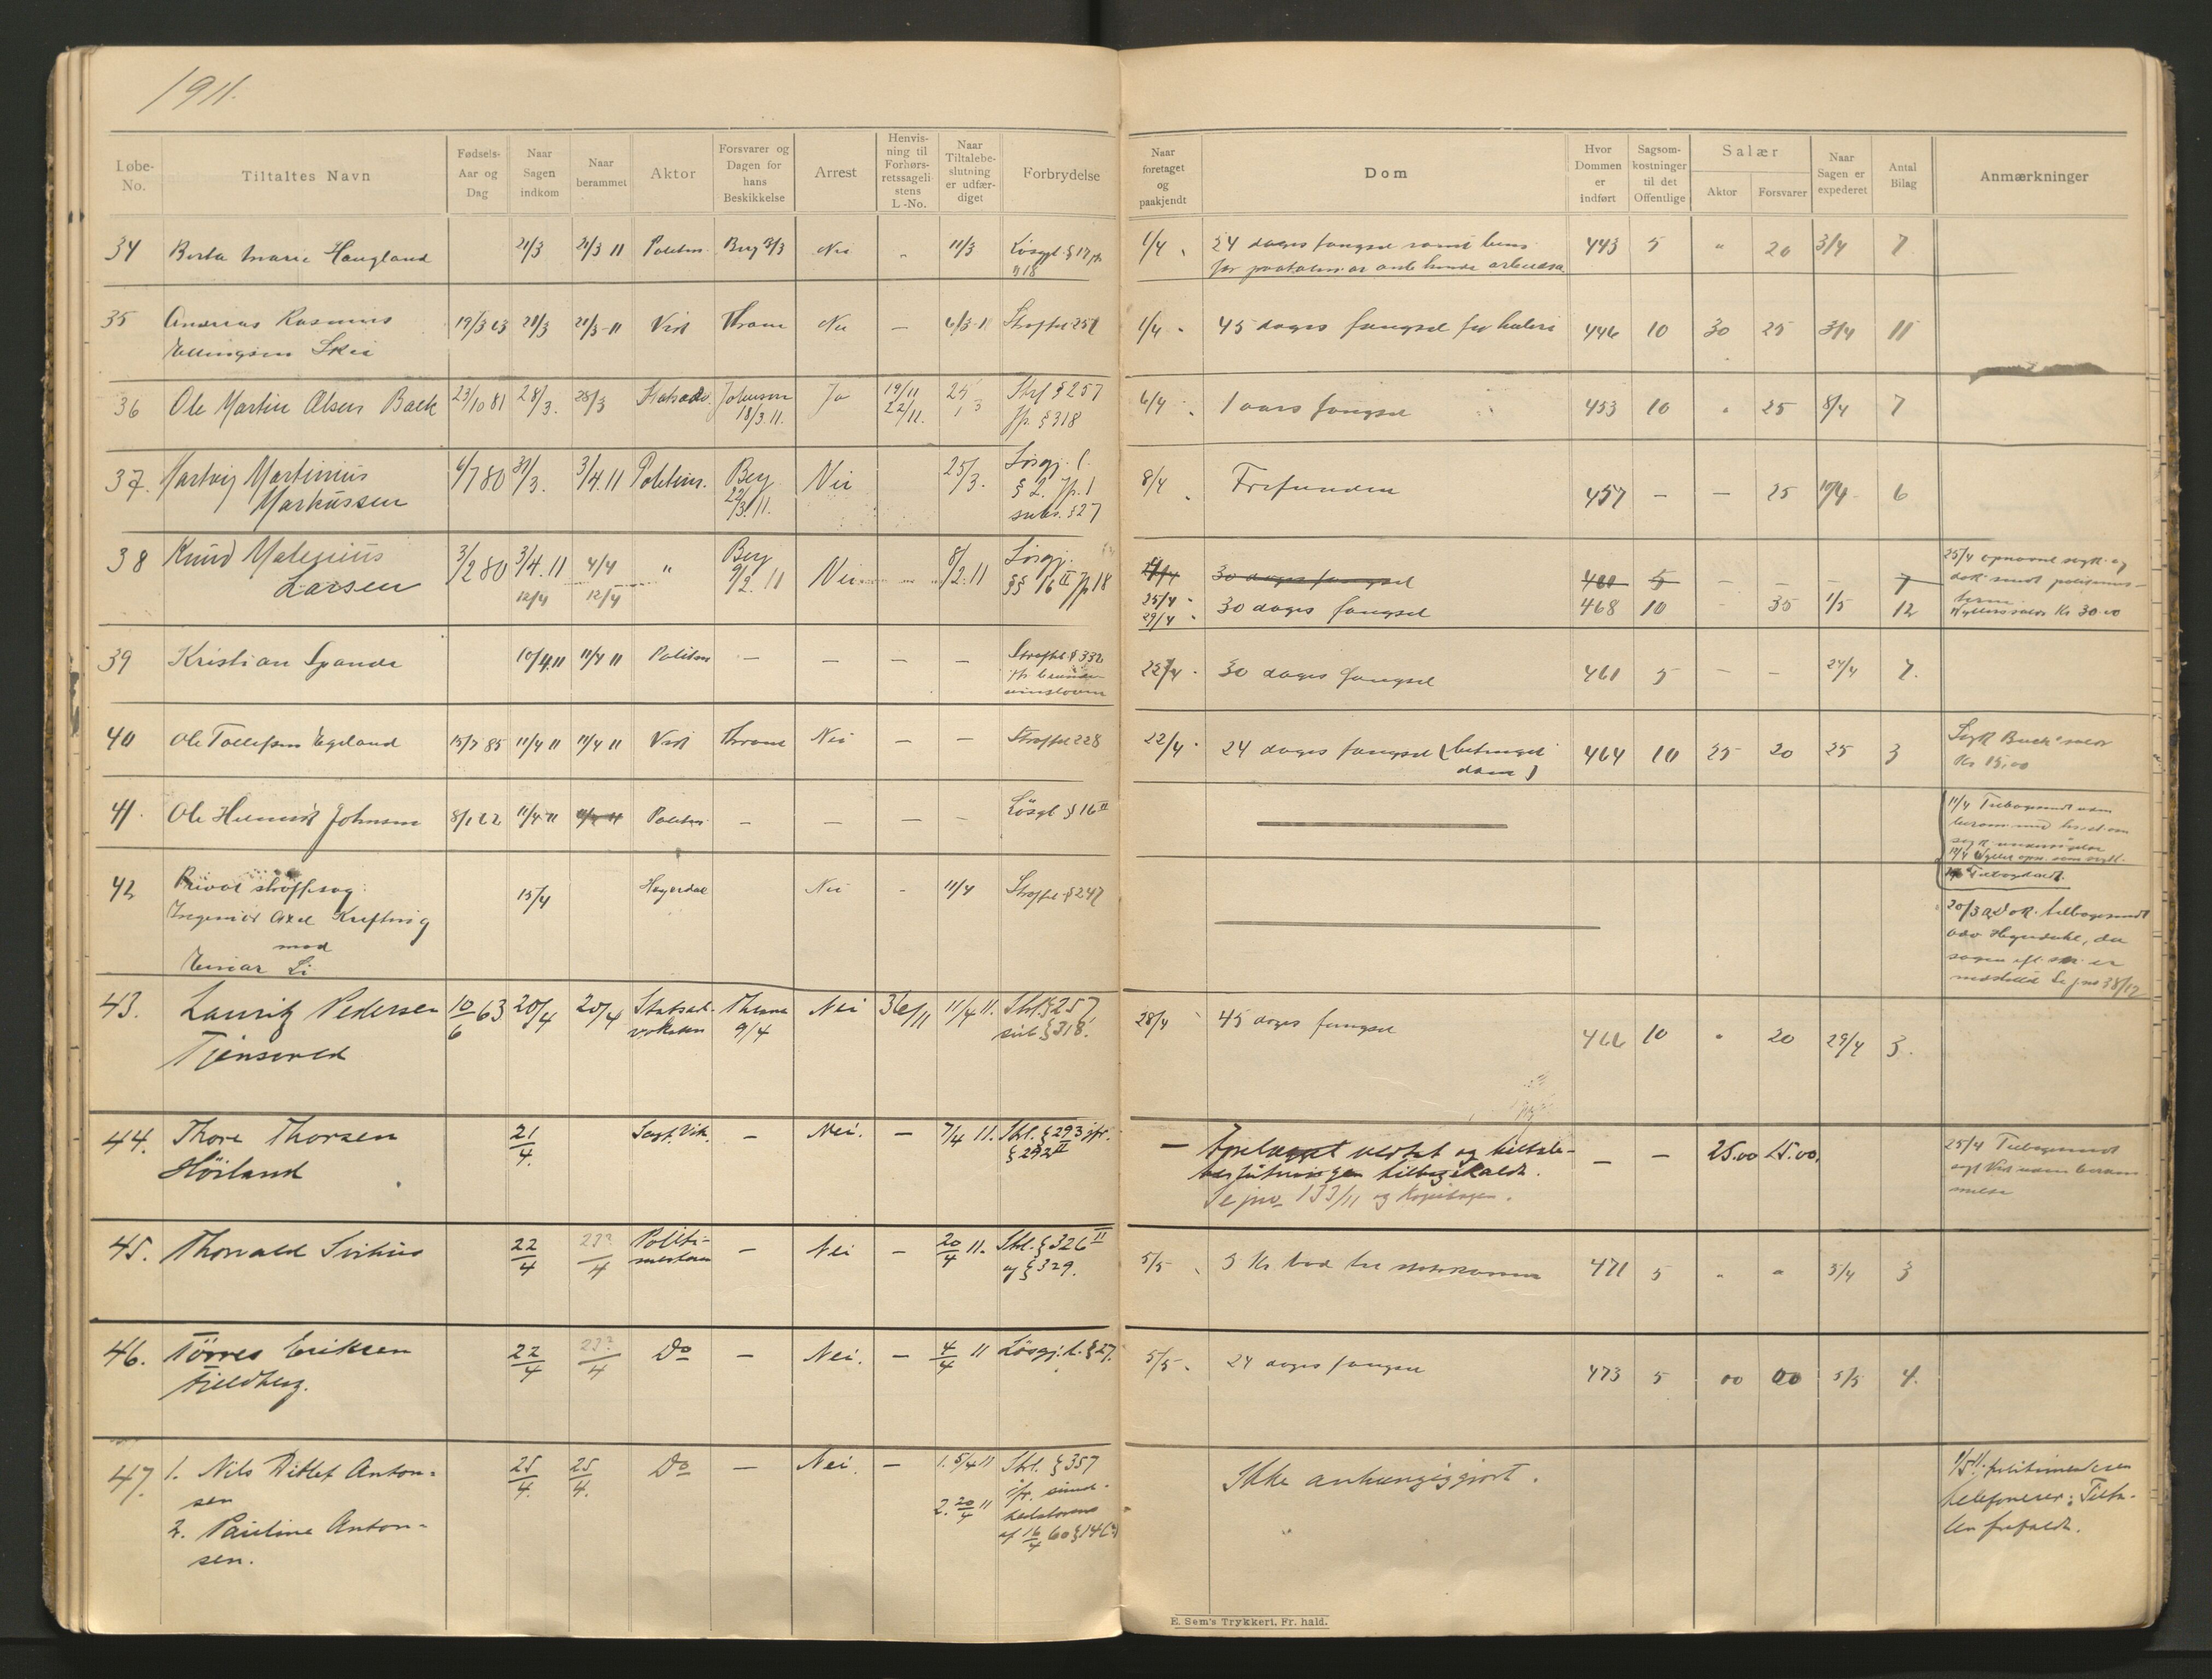 1911.
Løbe-No. Tiltaltes Navn Fødsels-Aar og Dag Naar Sagen indkom Naar berammet Aktor Forsvarer og Dagen for hans Beskikkelse Arrest Henvis-ning til Forhørs-retssageli-stens L.-No. Naar Tiltalebe-slutning er udfær-diget Forbrydelse Naar foretaget og paakjendt Dom Hvor Dommen er indført Sagsom-kostninger til det Offentlige Salær Aktor Forsvarer Naar Sagen er expederet Antal Bilag Anmærkninger
34 Berta Marie Haugland 21/3 21/3 11 Politim. Berg Nei 11/3 Løsgjl. § 17 jfr § 18 1/4 24 dages fængsel samt 443 5 " 20 3/4 7
35 Andreas Rasmus 19/3 63 21/3 21/3-11 Vist Thrane Nei — 6/3-11 Straffel 257 1/4 45 dages fængsel for hæleri 446 10 30 25 3/4 11
Ellingsen Skei
36 Ole Martin Olsen Bæk 23/10 81 28/3. 28/3 Statsadv. Johnsen 18/3.11. Ja 19/11 22/11. 25/3 Strl § 257 jfr. § 318 6/4 1 aars fængsel 453 10 " 25 8/4 7
37. Hartvig Martinius 6/7 80 31/3. 3/4.11 Politim. Berg 22/3.11. Nei 25/3. Løsgj. l. § 2. jfr. 1 subs. § 27 8/4 Frifunden 457 — — 25 10/4 6
Markussen
38 Knud Maleniüs 3/2 80 3/4.11 4/4 " Berg 9/2.11 Nei 8/2.11 Løsgj. §§ 16 II jfr 18 30 dages fængsel 460 5 — — — 7 25/4 opnævnt
Larsen 12/4 12/4 25/4 29/4 30 dages fængsel 468 10 — 35 1/5 12 Kr 30.00
39 Kristian Spande 10/4.11 11/4 11 Politim — — — — Straffel. § 332 22/4 30 dages fængsel 461 5 — — 24/4 7.
40 Ole Tollefsen Egeland 15/7 85 11/4 11 11/4 11 Vist Thrane Nei — — Straffel 228 22/4 24 dages fængsel (betinget dom) 464 10 25 20 25 3 Kr 15,00
41. Ole Helmich Johnsen 8/1 22 11/4 11 Politim. — — — — Løsgl § 16 II 11/4 Tilbagesendt uden
42 Privat straffesag: 15/4 Hegerdal Nei - 11/4 Straffel § 247
Ingeniør Axel Krefting
mod
Einar Li
20/3 12 Dok. tilbagesendt adv. Hegerdahl, da sagen
43. Lauritz Pedersen 10/6 63 20/4 20/4 Statsad-vokaten Thrane 9/4 Nei 36/11 11/4 11. Strl. § 257 sub § 318. 28/4 45 dages fængsel 466 10 " 20 29/4 3.
Tjensvold
44. Thore Thorsen 21/4. Sagf. Vik. — Nei. — 7/4 11. Strl. § 293 jfr. § 292 II — Forelægget vedtat og tiltale- — — 25.00 25.00. 25/4 Tilbagesendt
Höiland beslutningen tilbagekaldt. sagf Vist uden beram-
Se jno 133/11 og Kopibogen. melse
45. Thorvald Svihus 22/4 23?/4 Politi-mesteren — Nei — 20/4 11. Strl. § 326 II og § 329. 5/5 5 Kr bod til statskassen 471 5 " " 5/4 3
46. Törres Eriksen 22/4 23?/4 Do — Nei. — 4/4 11 Løsgj. l. § 27. 5/5 24 dages fængsel 473 5 00 00 5/5 4.
Fjeldberg.
47. 1. Nils Ditlef Anton- 25/4. 25/4. Do — Nei. — 1. 5/4 11 Strl. § 357 Ikke anhængiggjort. 1/5 11. politimesteren
sen jfr. sund- telefonerer: Tilta-
2. Pauline Anton- 2. 20/4 11 hedsloven len frafaldt.
sen. af 16/4 60 § 14
E. Sem's Trykkeri, Fr. hald.